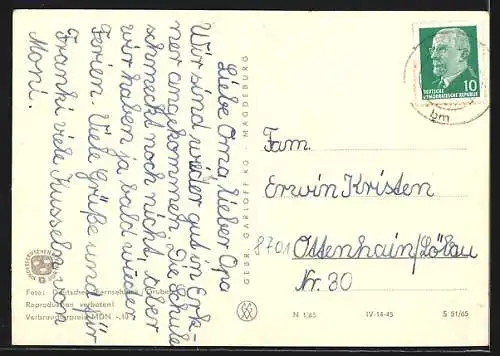 Liebe Oma, lieber Opa
Wir sind wieder gut in Erk-
ner angekommen. Die Schule
schmeckt noch nicht, aber
wir haben ja bald wieder
Ferien. Viele Grüße und für
Franki viele Kusseln vom
Moni.
GEBR. GARLOFF KG - MAGDEBURG
Foto: Deutscher Fernsehfunk / Grube
Reproduktion verboten!
Verbraucherpreis MDN -,10
DEUTSCHE
DEMOKRATISCHE REPUBLIK
10
bm
Fam.
Erwin Kristen
8701
Ottenhain/Löbau
Nr. 80
N 1/65 IV-14-45 S 51/65